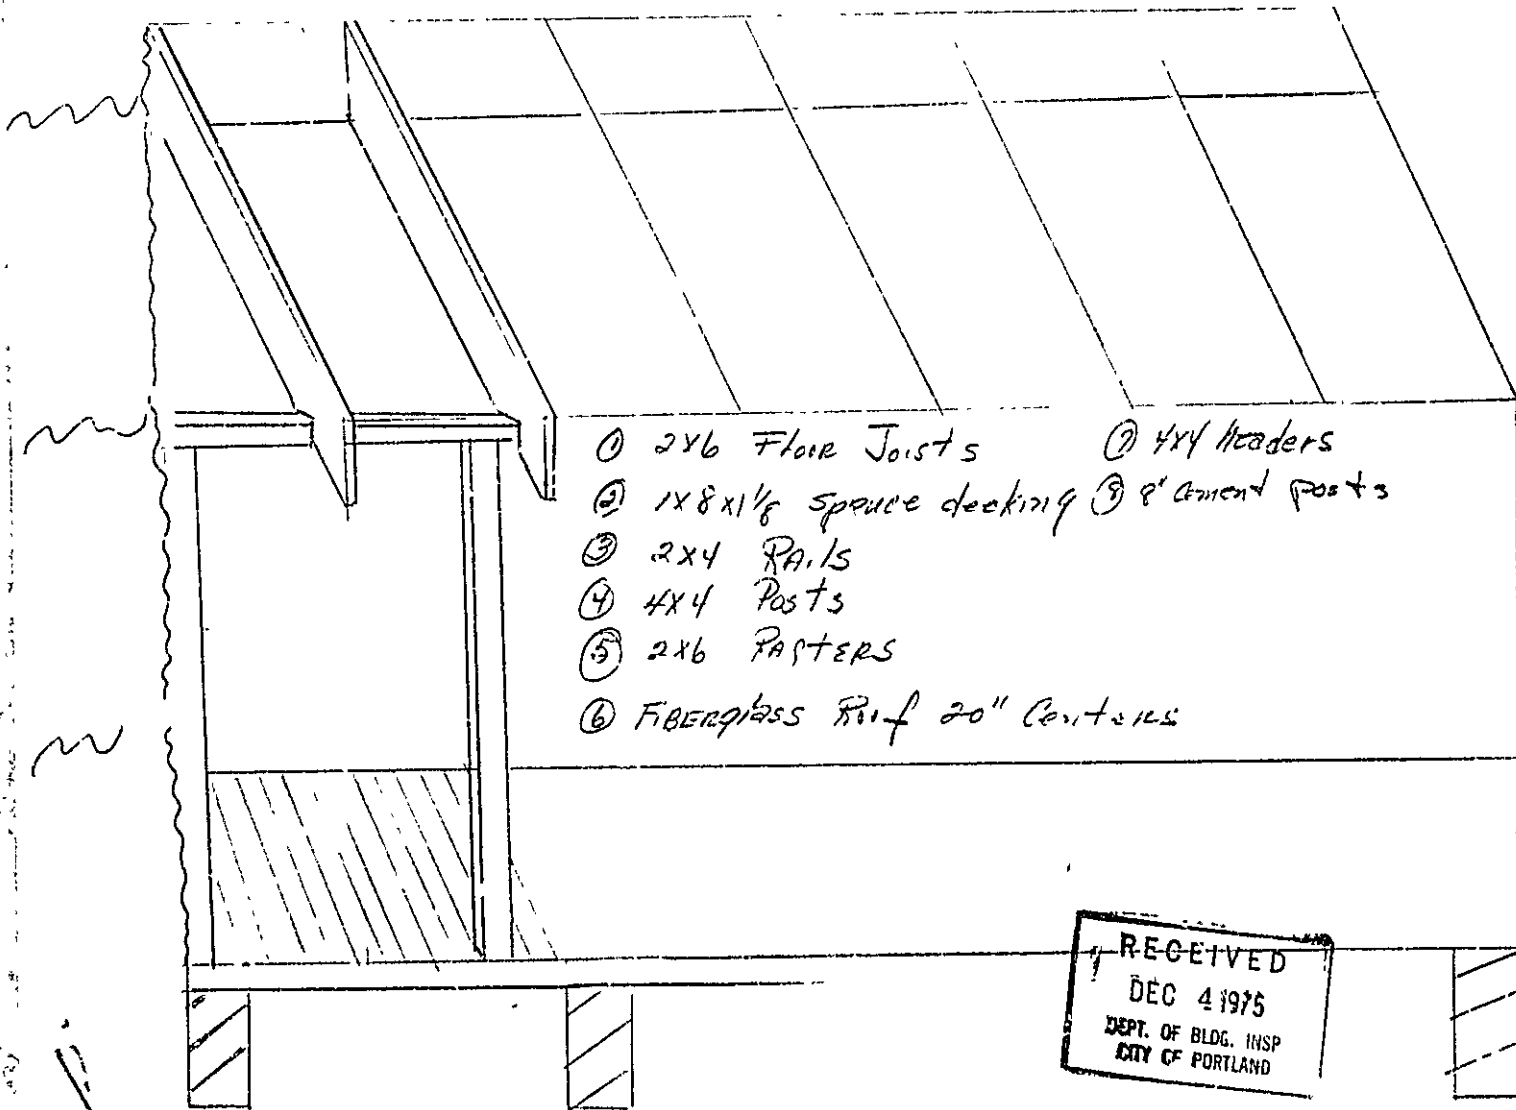 ① 2x6 Floor Joists
② 1x8x1⅛ spruce decking
③ 2x4 Rails
④ 4x4 Posts
⑤ 2x6 RAFTERS
⑥ FIBERglass Roof 20" Centers
⑦ 4x4 Headers
⑧ 8" cement posts
RECEIVED
DEC 4 1975
DEPT. OF BLDG. INSP
CITY OF PORTLAND